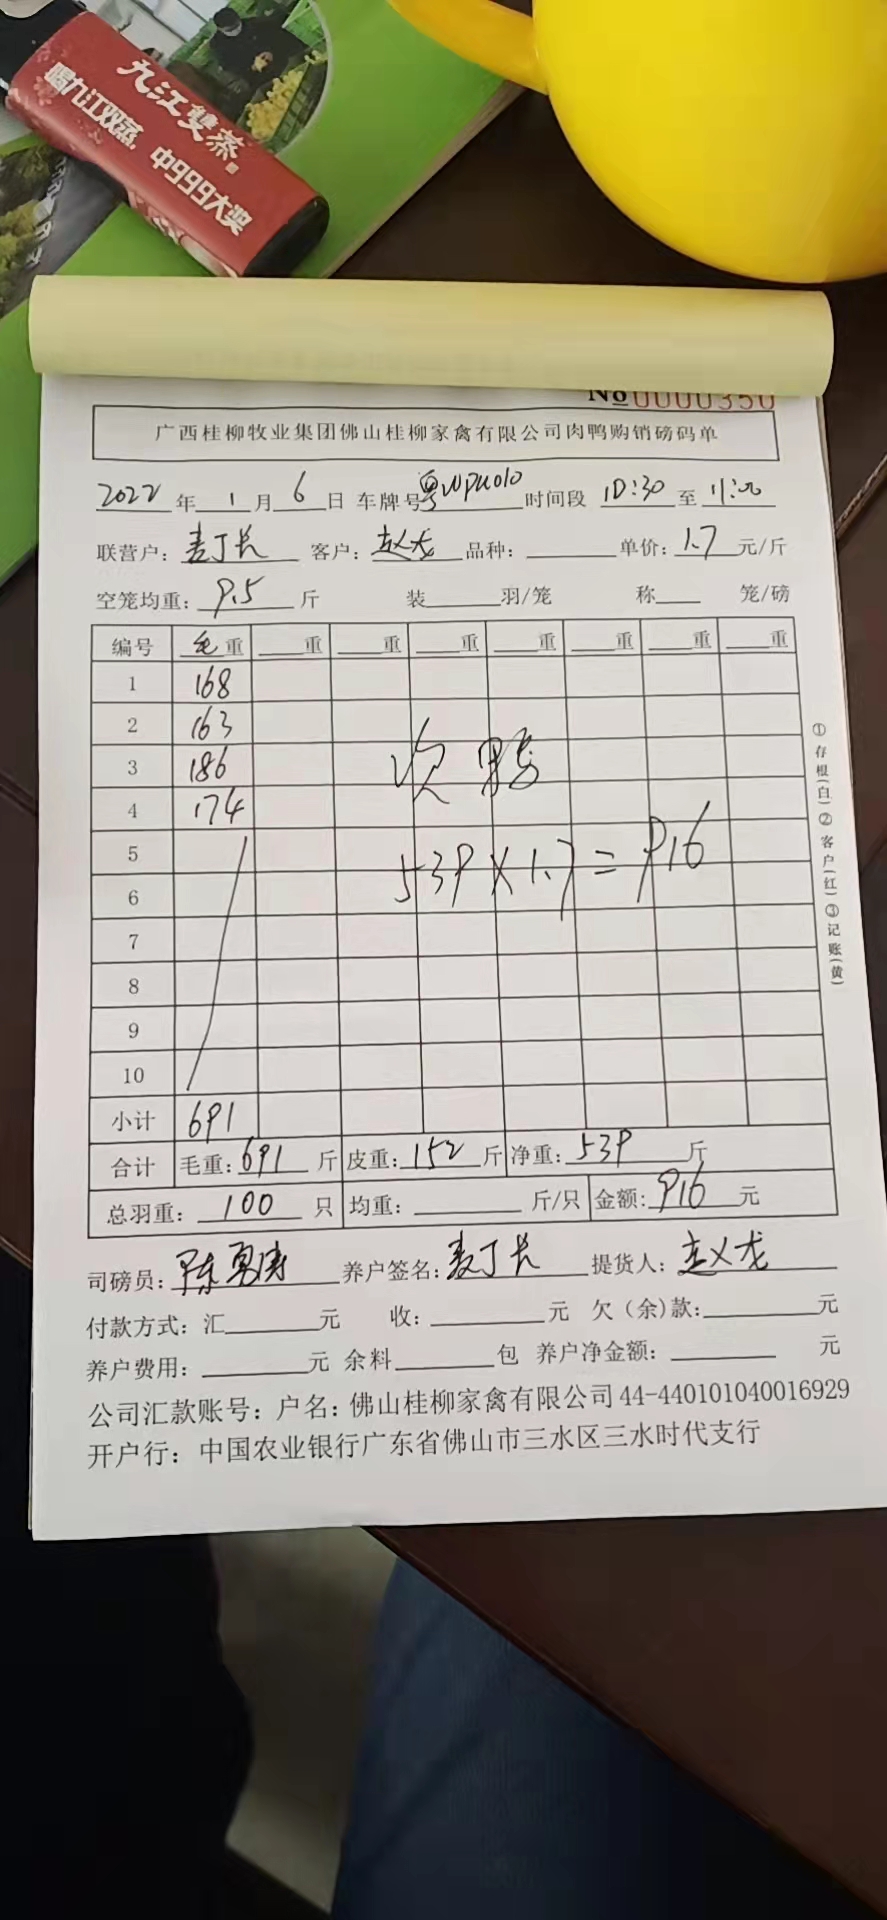 九江雙蒸
喝九江双蒸，中999大奖
No 0000350
广西桂柳牧业集团佛山桂柳家禽有限公司肉鸭购销磅码单
2022 年 1 月 6 日 车牌号 粤 时间段 10:30 至 11:00
联营户：麦丁长 客户：赵义龙 品种： 单价：1.7 元/斤
空笼均重：9.5 斤 装 羽/笼 称 笼/磅
编号 毛重 重 重 重 重 重 重 重
1 168
2 163
3 186
4 174
5
6
7
8
9
10
次鸭
539×1.7=916
小计 691
合计 毛重：691 斤 皮重：152 斤 净重：539 斤
总羽重：100 只 均重： 斤/只 金额：916 元
司磅员：陈勇涛 养户签名：麦丁长 提货人：赵义龙
付款方式：汇 元 收： 元 欠（余）款： 元
养户费用： 元 余料 包 养户净金额： 元
公司汇款账号：户名：佛山桂柳家禽有限公司 44-440101040016929
开户行：中国农业银行广东省佛山市三水区三水时代支行
①存根(白)②客户(红)③记账(黄)